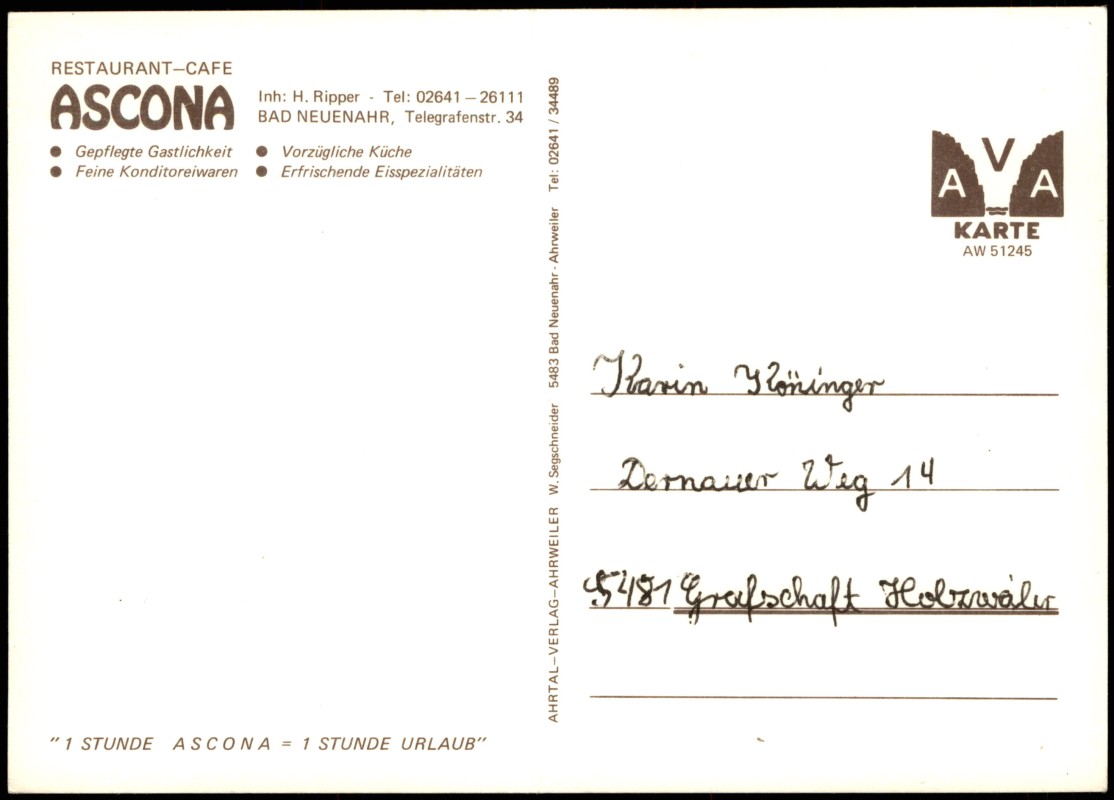 RESTAURANT–CAFE
ASCONA
Inh: H. Ripper - Tel: 02641 – 26111
BAD NEUENAHR, Telegrafenstr. 34
● Gepflegte Gastlichkeit ● Vorzügliche Küche
● Feine Konditoreiwaren ● Erfrischende Eisspezialitäten
"1 STUNDE ASCONA = 1 STUNDE URLAUB"
AHRTAL–VERLAG–AHRWEILER W. Segschneider 5483 Bad Neuenahr-Ahrweiler Tel: 02641 / 34489
AVA
KARTE
AW 51245
Karin Köninger
Dernauer Weg 14
5481 Grafschaft Holzwäler